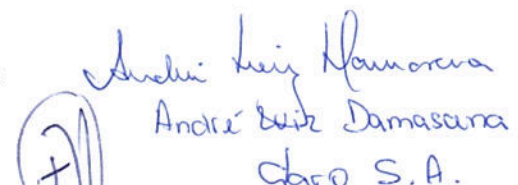 André Luiz Damascena
André Luiz Damascena
Claro S.A.